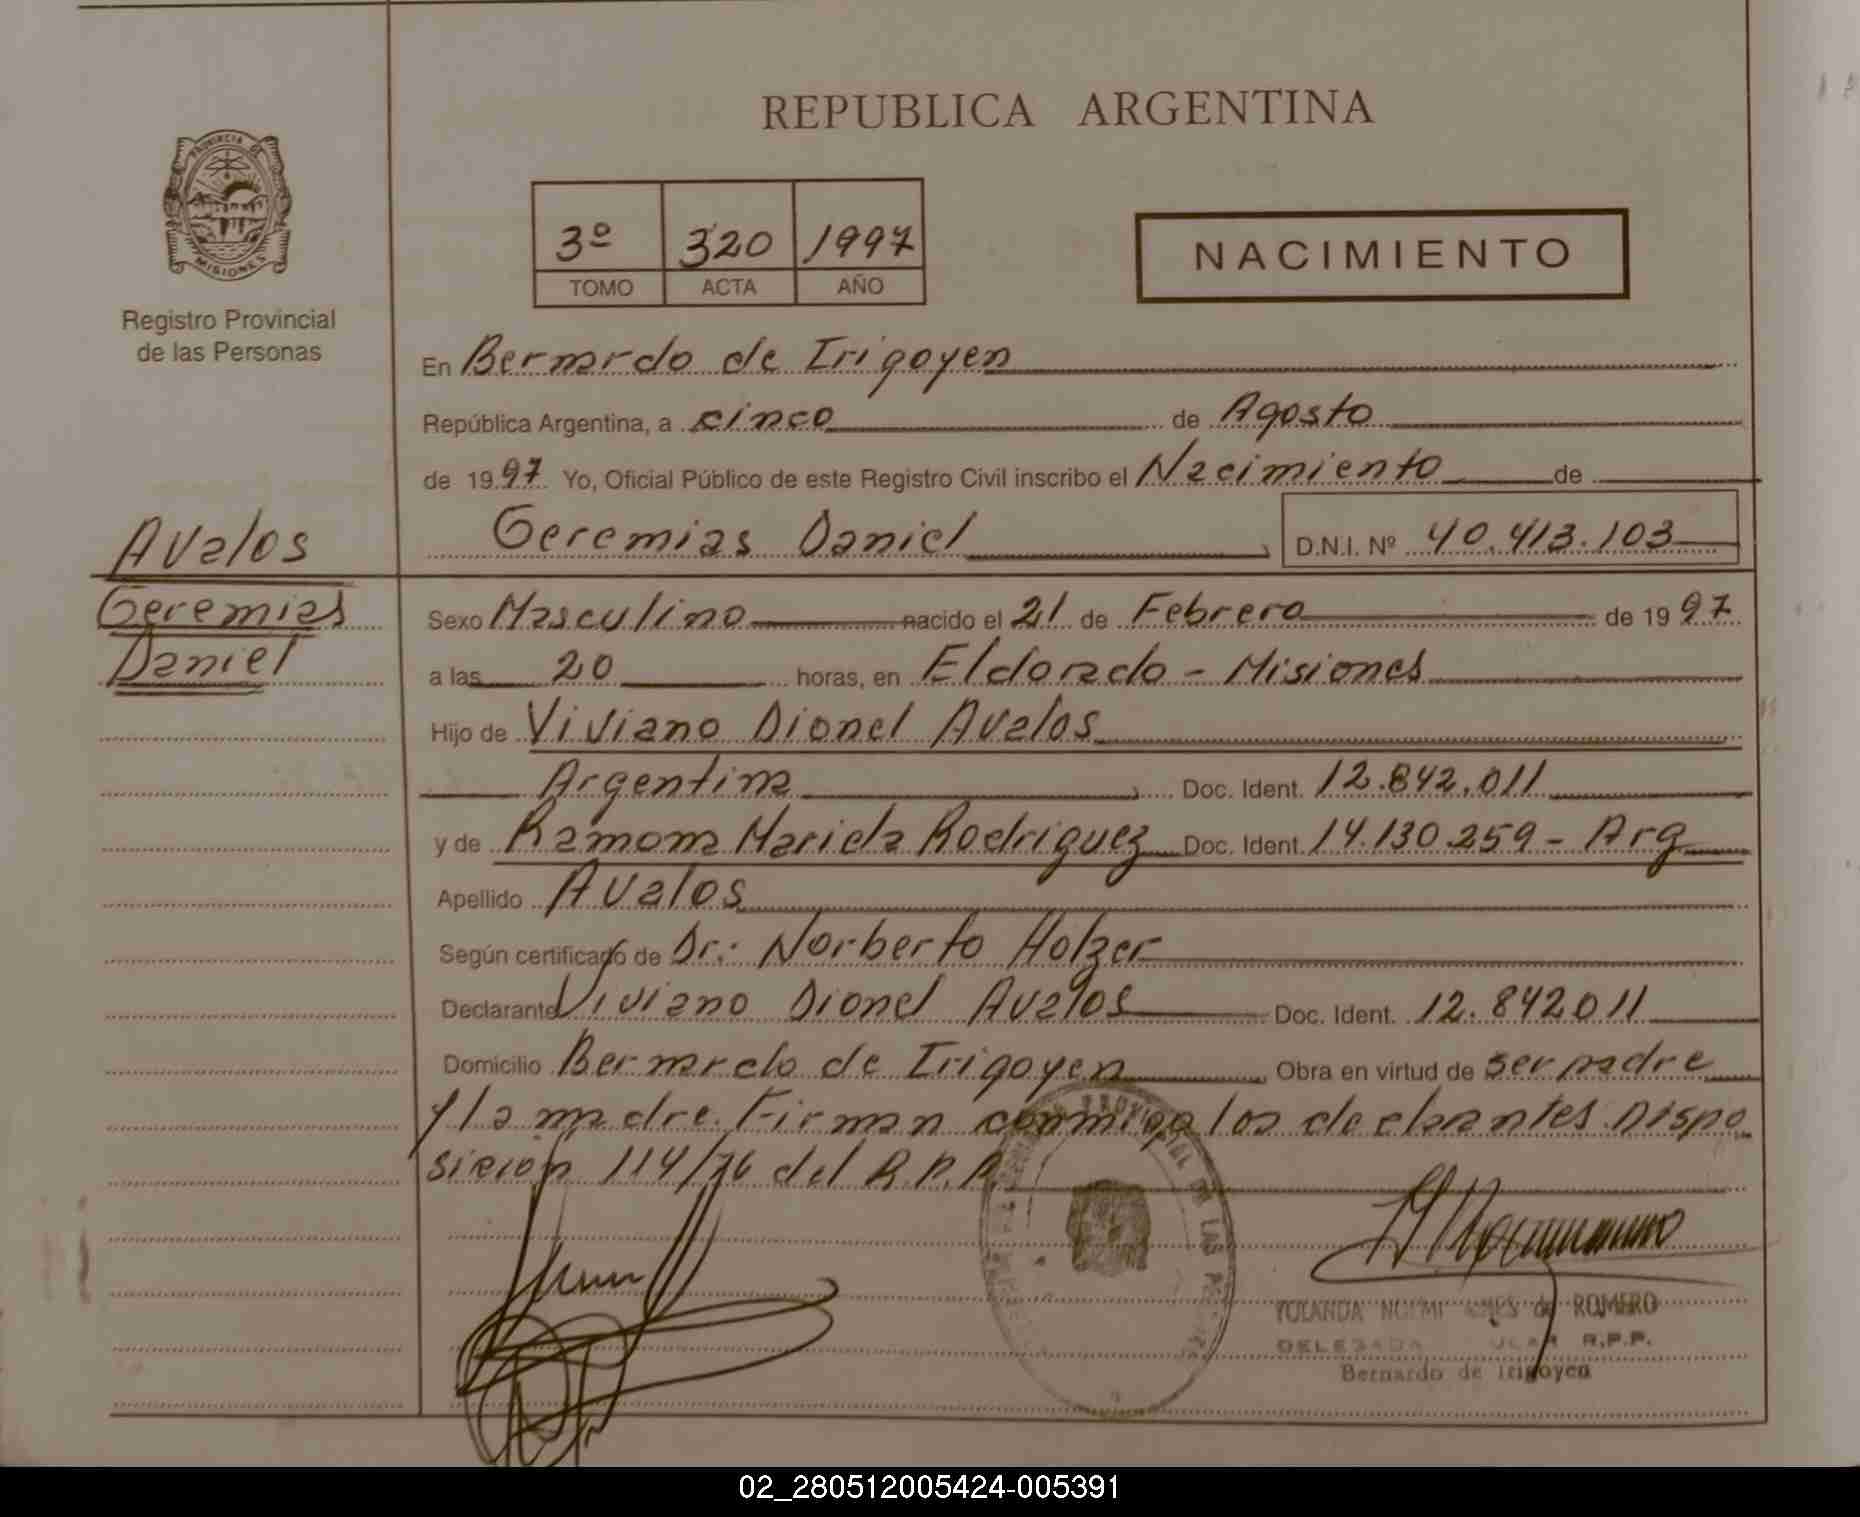 REPUBLICA ARGENTINA
PROVINCIA DE
MISIONES
Registro Provincial
de las Personas
3º 320 1997
TOMO ACTA AÑO
NACIMIENTO
En Bernardo de Irigoyen
República Argentina, a cinco de Agosto
de 1997 Yo, Oficial Público de este Registro Civil inscribo el Nacimiento de
Geremias Daniel D.N.I. Nº 40.413.103
Avalos
Geremias
Daniel
Sexo Masculino nacido el 21 de Febrero de 1997
a las 20 horas, en Eldorado - Misiones
Hijo de Viviano Dionel Avalos
Argentina Doc. Ident. 12.842.011
y de Ramona Mariela Rodriguez Doc. Ident. 14.130.259 - Arg
Apellido Avalos
Según certificado de Dr.: Norberto Holzer
Declarante Viviano Dionel Avalos Doc. Ident. 12.842011
Domicilio Bernardo de Irigoyen Obra en virtud de ser padre
y la madre. Firman conmigo los declarantes. Dispo
sición 114/76 del R.P.P.
YOLANDA NOEMI de ROMERO
DELEGADA R.P.P.
Bernardo de Irigoyen
02_280512005424-005391